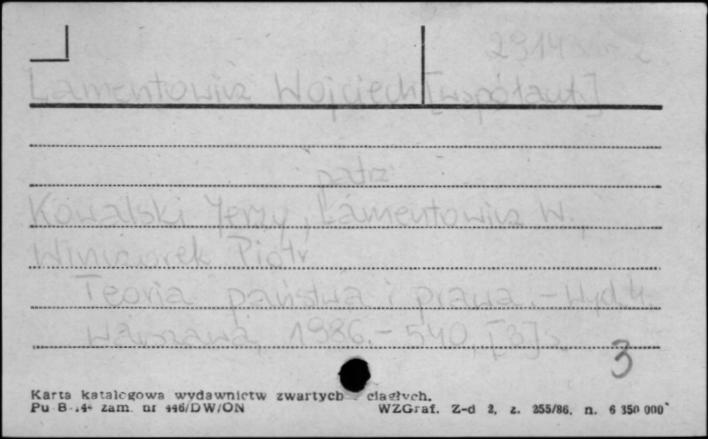 2914
Lamentowicz Wojciech [współaut.]
patrz
Kowalski Jerzy, Lamentowicz W.,
Winczorek Piotr
Teoria państwa i prawa.- Wyd.4.
Warszawa, 1986.- 540, [3] s.
3
Karta katalogowa wydawnictw zwartych - ciągłych.
Pu B-14 zam. nr 446/DW/ON WZGraf. Z-d 2, z. 255/86, n. 6 350 000